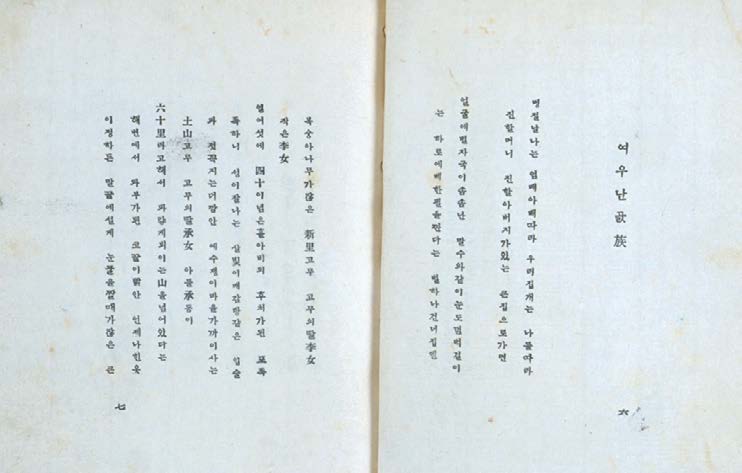 여우난곬族
명절날나는 엄매아배따라 우리집개는 나를따라
진할머니 진할아버지가있는 큰집으로가면
얼굴에별자국이솜솜난 말수와같이눈도껌벅걸이
는 하로에베한필을짠다는 벌하나건너집엔
六
복숭아나무가많은 新里고무 고무의딸李女
작은李女
열여섯에 四十이넘은홀아비의 후처가된 포족
족하니 성이잘나는 살빛이매감탕같은 입술
과 젓꼭지는더깜안 예수쟁이마을가까이사는
土山고무 고무의딸承女 아들承동이
六十里라고해서 파랗게뵈이는山을넘어있다는
해변에서 과부가된 코끝이빩안 언제나힌옷
이정하든 말끝에설게 눈물을짤때가많은 큰
七